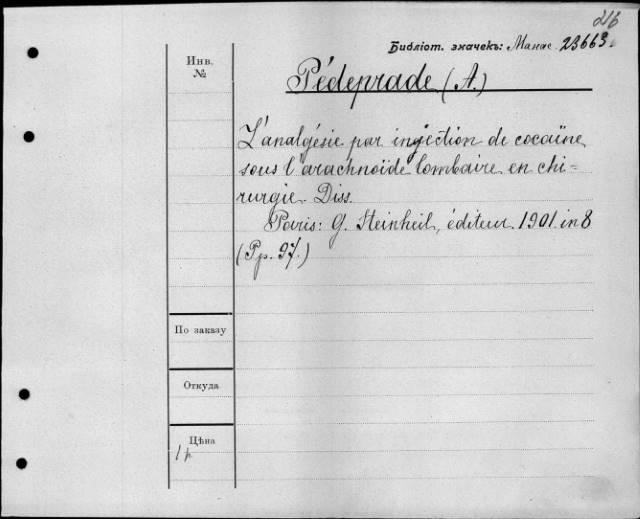 216
Библіот. значекъ: Манас. 23663.
Инв.
№
Pédeprade (A.)
L'analgésie par injection de cocaïne
sous l'arachnoïde lombaire en chi-
rurgie. Diss.
Paris: G. Steinheil, éditeur. 1901. in 8
(Pp. 97.)
По заказу
Откуда
Цѣна
1 р.